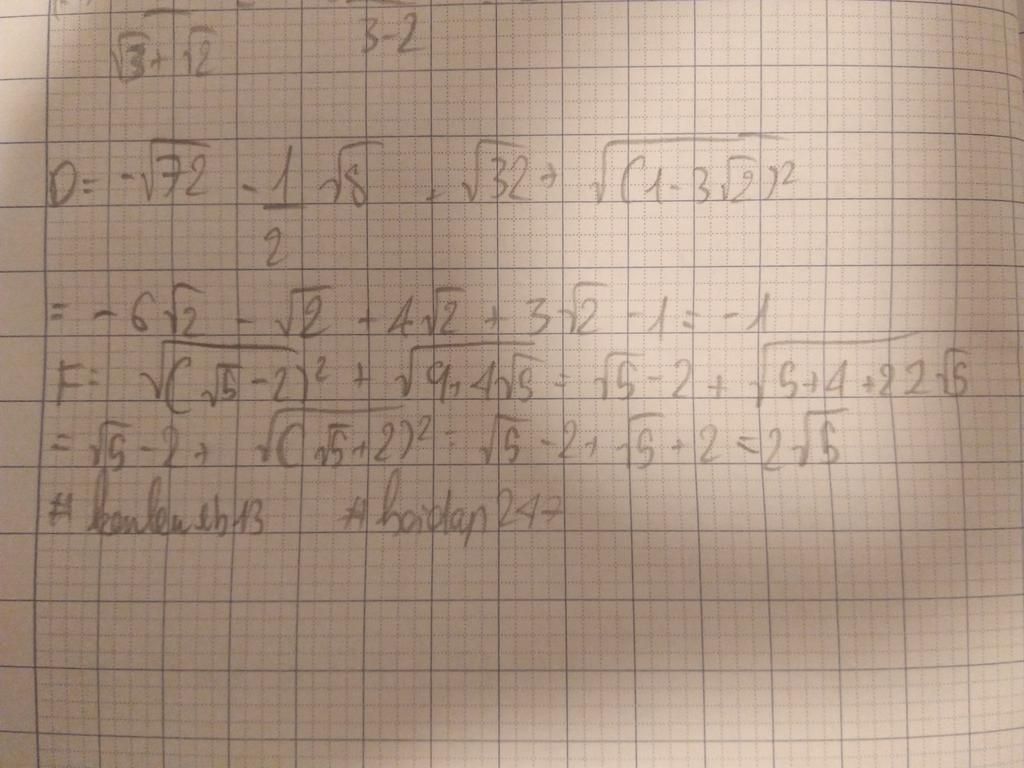 √3+ √2 3-2
D= -√72 - 1/2 √8 - √32 + √(1-3√2)²
= -6√2 - √2 + 4√2 + 3√2 -1 = -1
F= √(√5-2)² + √9+4√5 = √5-2 + √5+4+2 2√5
= √5-2+ √(√5+2)² = √5-2+√5+2 =2√5
# hoidap247